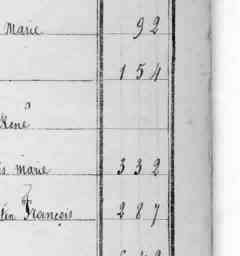 Marie 92
154
René
is Marie 332
tin François 287